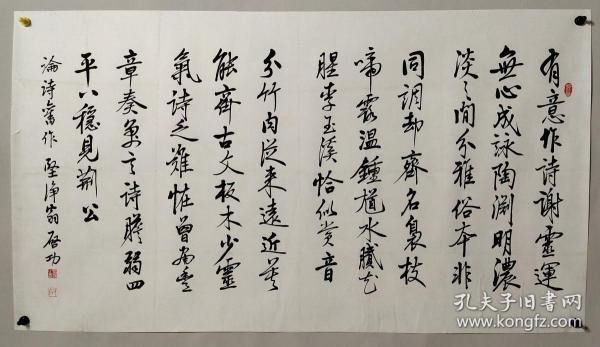 有意作詩謝靈運
無心成詠陶淵明濃
淡之間分雅俗本非
同調却齊名裊枝
啼露溫鍾馗水膩花
腥李玉溪恰似賞音
分竹肉從來遠近莫
能齊古文板木少靈
氣詩之難怪曾南豐
章奏萬言詩膽弱四
平八穩見荊公
論詩舊作 堅淨翁 啟功
孔夫子旧书网
www.kongfz.com